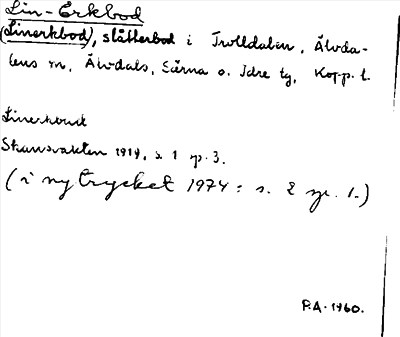 Lin-Erkbod
(Linerkbod), slåtterbod i Trolldalen, Älvda-
lens sn, Älvdals, Särna o. Idre tg, Kopp. l.
Linerkbusk
Skansvakten 1919, s. 1 sp. 3.
(i nytrycket 1974: s. 2 sp. 1.)
P.A. 1960.